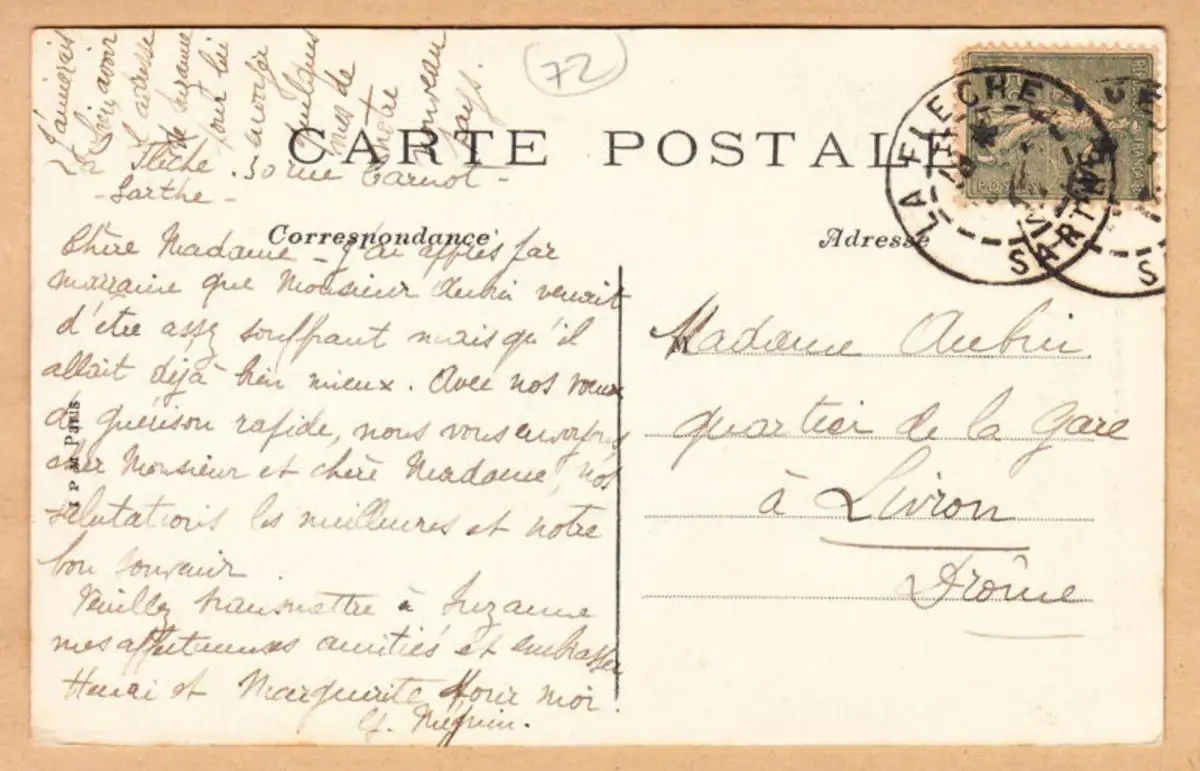 J'aimerais
bien avoir
l'adresse
de Suzanne
pour lui
envoyer
quelques
vues de
notre
nouveau
pays.
72
CARTE POSTALE
La Flèche. 30 rue Carnot -
- Sarthe -
Correspondance
Adresse
LA FLECHE
SARTHE
Chère Madame - J'ai appris par
marraine que Monsieur Aubin venait
d'être assez souffrant mais qu'il
allait déjà bien mieux. Avec nos voeux
de guérison rapide, nous vous envoyons
cher Monsieur et chère Madame, nos
salutations les meilleures et notre
bon souvenir.
Veuillez transmettre à Suzanne
mes affectueuses amitiés et embrasser
Henri et Marguerite pour moi.
I P M Paris
M
Madame Aubin
quartier de la Gare
à Livron
Drôme